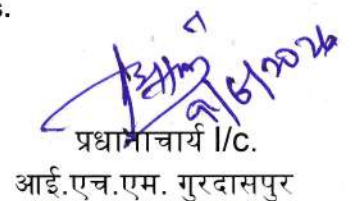 s.
9/6/2026
प्रधानाचार्य I/c.
आई.एच.एम. गुरदासपुर